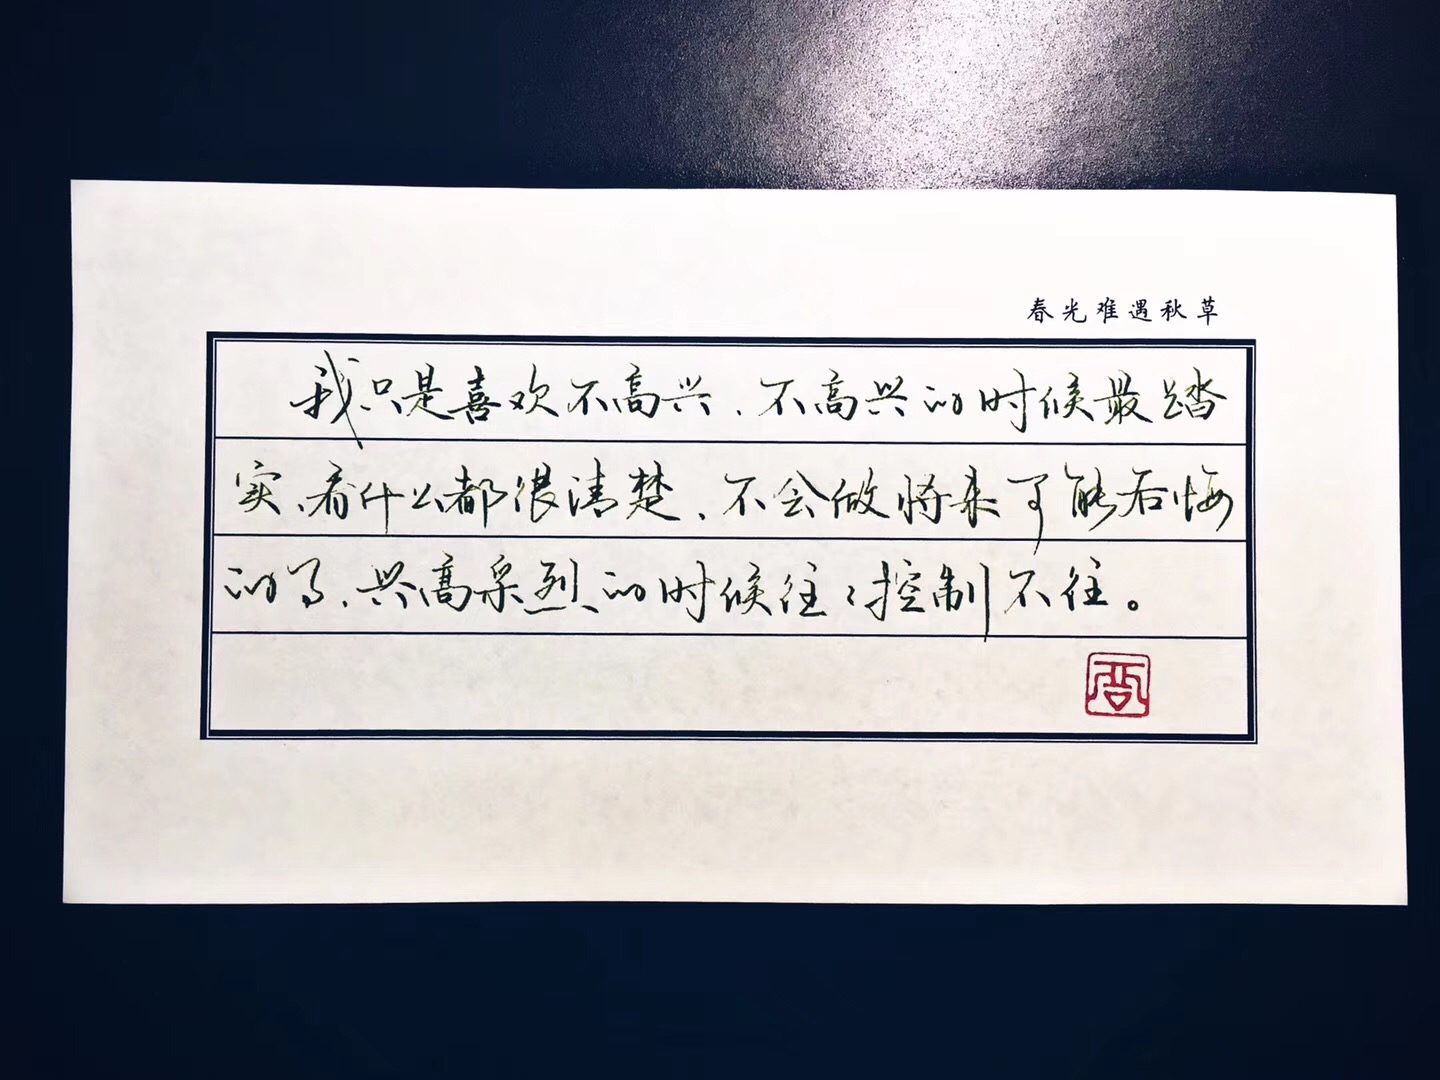 春光难遇秋草
我只是喜欢不高兴、不高兴的时候最踏
实、看什么都很清楚、不会做将来可能后悔
的事、兴高采烈的时候往々控制不住。